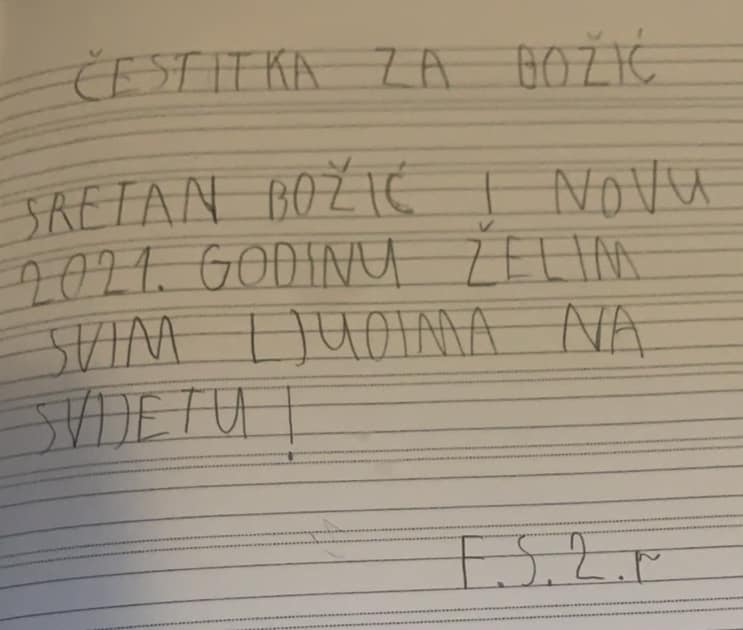 ČESTITKA ZA BOŽIĆ
SRETAN BOŽIĆ I NOVU
2021. GODINU ŽELIM
SVIM LJUDIMA NA
SVIJETU!
F.S.2.r